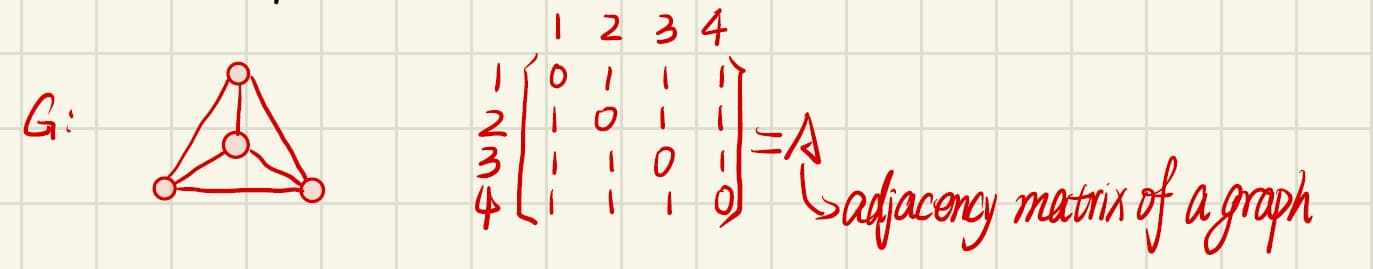 1 2 3 4
G:
1 [ 0 1 1 1 ]
2 [ 1 0 1 1 ] = A
3 [ 1 1 0 1 ]
4 [ 1 1 1 0 ]
↳ adjacency matrix of a graph